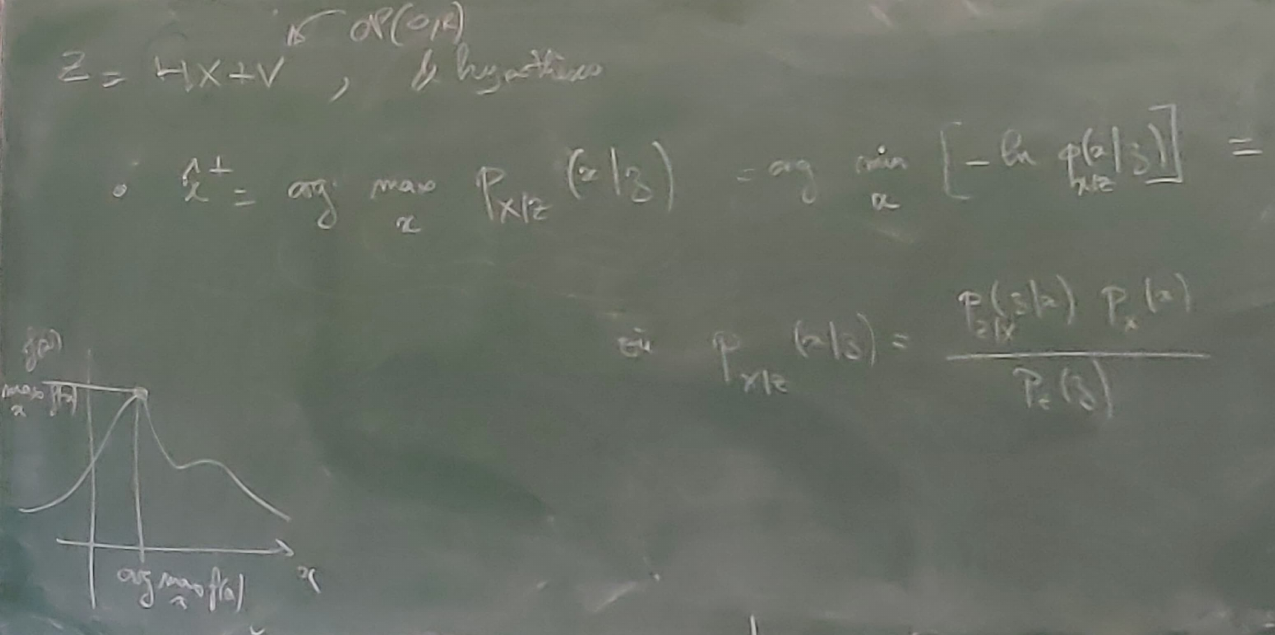 (0,R)
Z = HX+V ,
• x̂⁺ = arg max_x p_{X|Z} (x|z) = arg min_x [-ln p_{X|Z}(x|z)] =
où p_{X|Z} (x|z) = p_{Z|X}(z|x) p_X(x) / p_Z(z)
f(x)
max_x f(x)
x
arg max_x f(x)